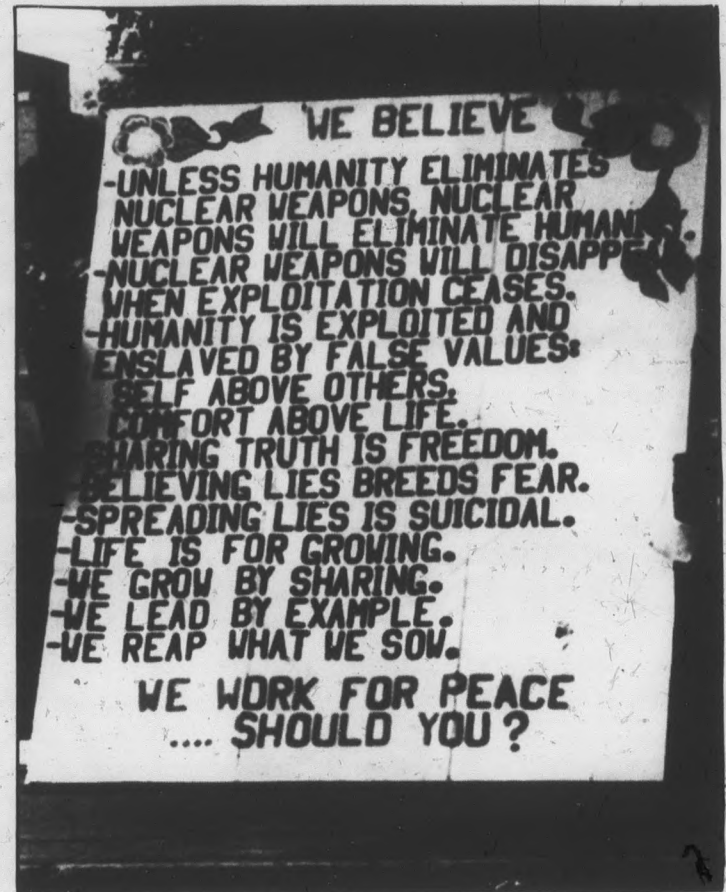 WE BELIEVE
-UNLESS HUMANITY ELIMINATES
NUCLEAR WEAPONS, NUCLEAR
WEAPONS WILL ELIMINATE HUMANITY.
-NUCLEAR WEAPONS WILL DISAPPEAR
WHEN EXPLOITATION CEASES.
-HUMANITY IS EXPLOITED AND
ENSLAVED BY FALSE VALUES:
SELF ABOVE OTHERS.
COMFORT ABOVE LIFE.
-SHARING TRUTH IS FREEDOM.
-BELIEVING LIES BREEDS FEAR.
-SPREADING LIES IS SUICIDAL.
-LIFE IS FOR GROWING.
-WE GROW BY SHARING.
-WE LEAD BY EXAMPLE.
-WE REAP WHAT WE SOW.
WE WORK FOR PEACE
.... SHOULD YOU?